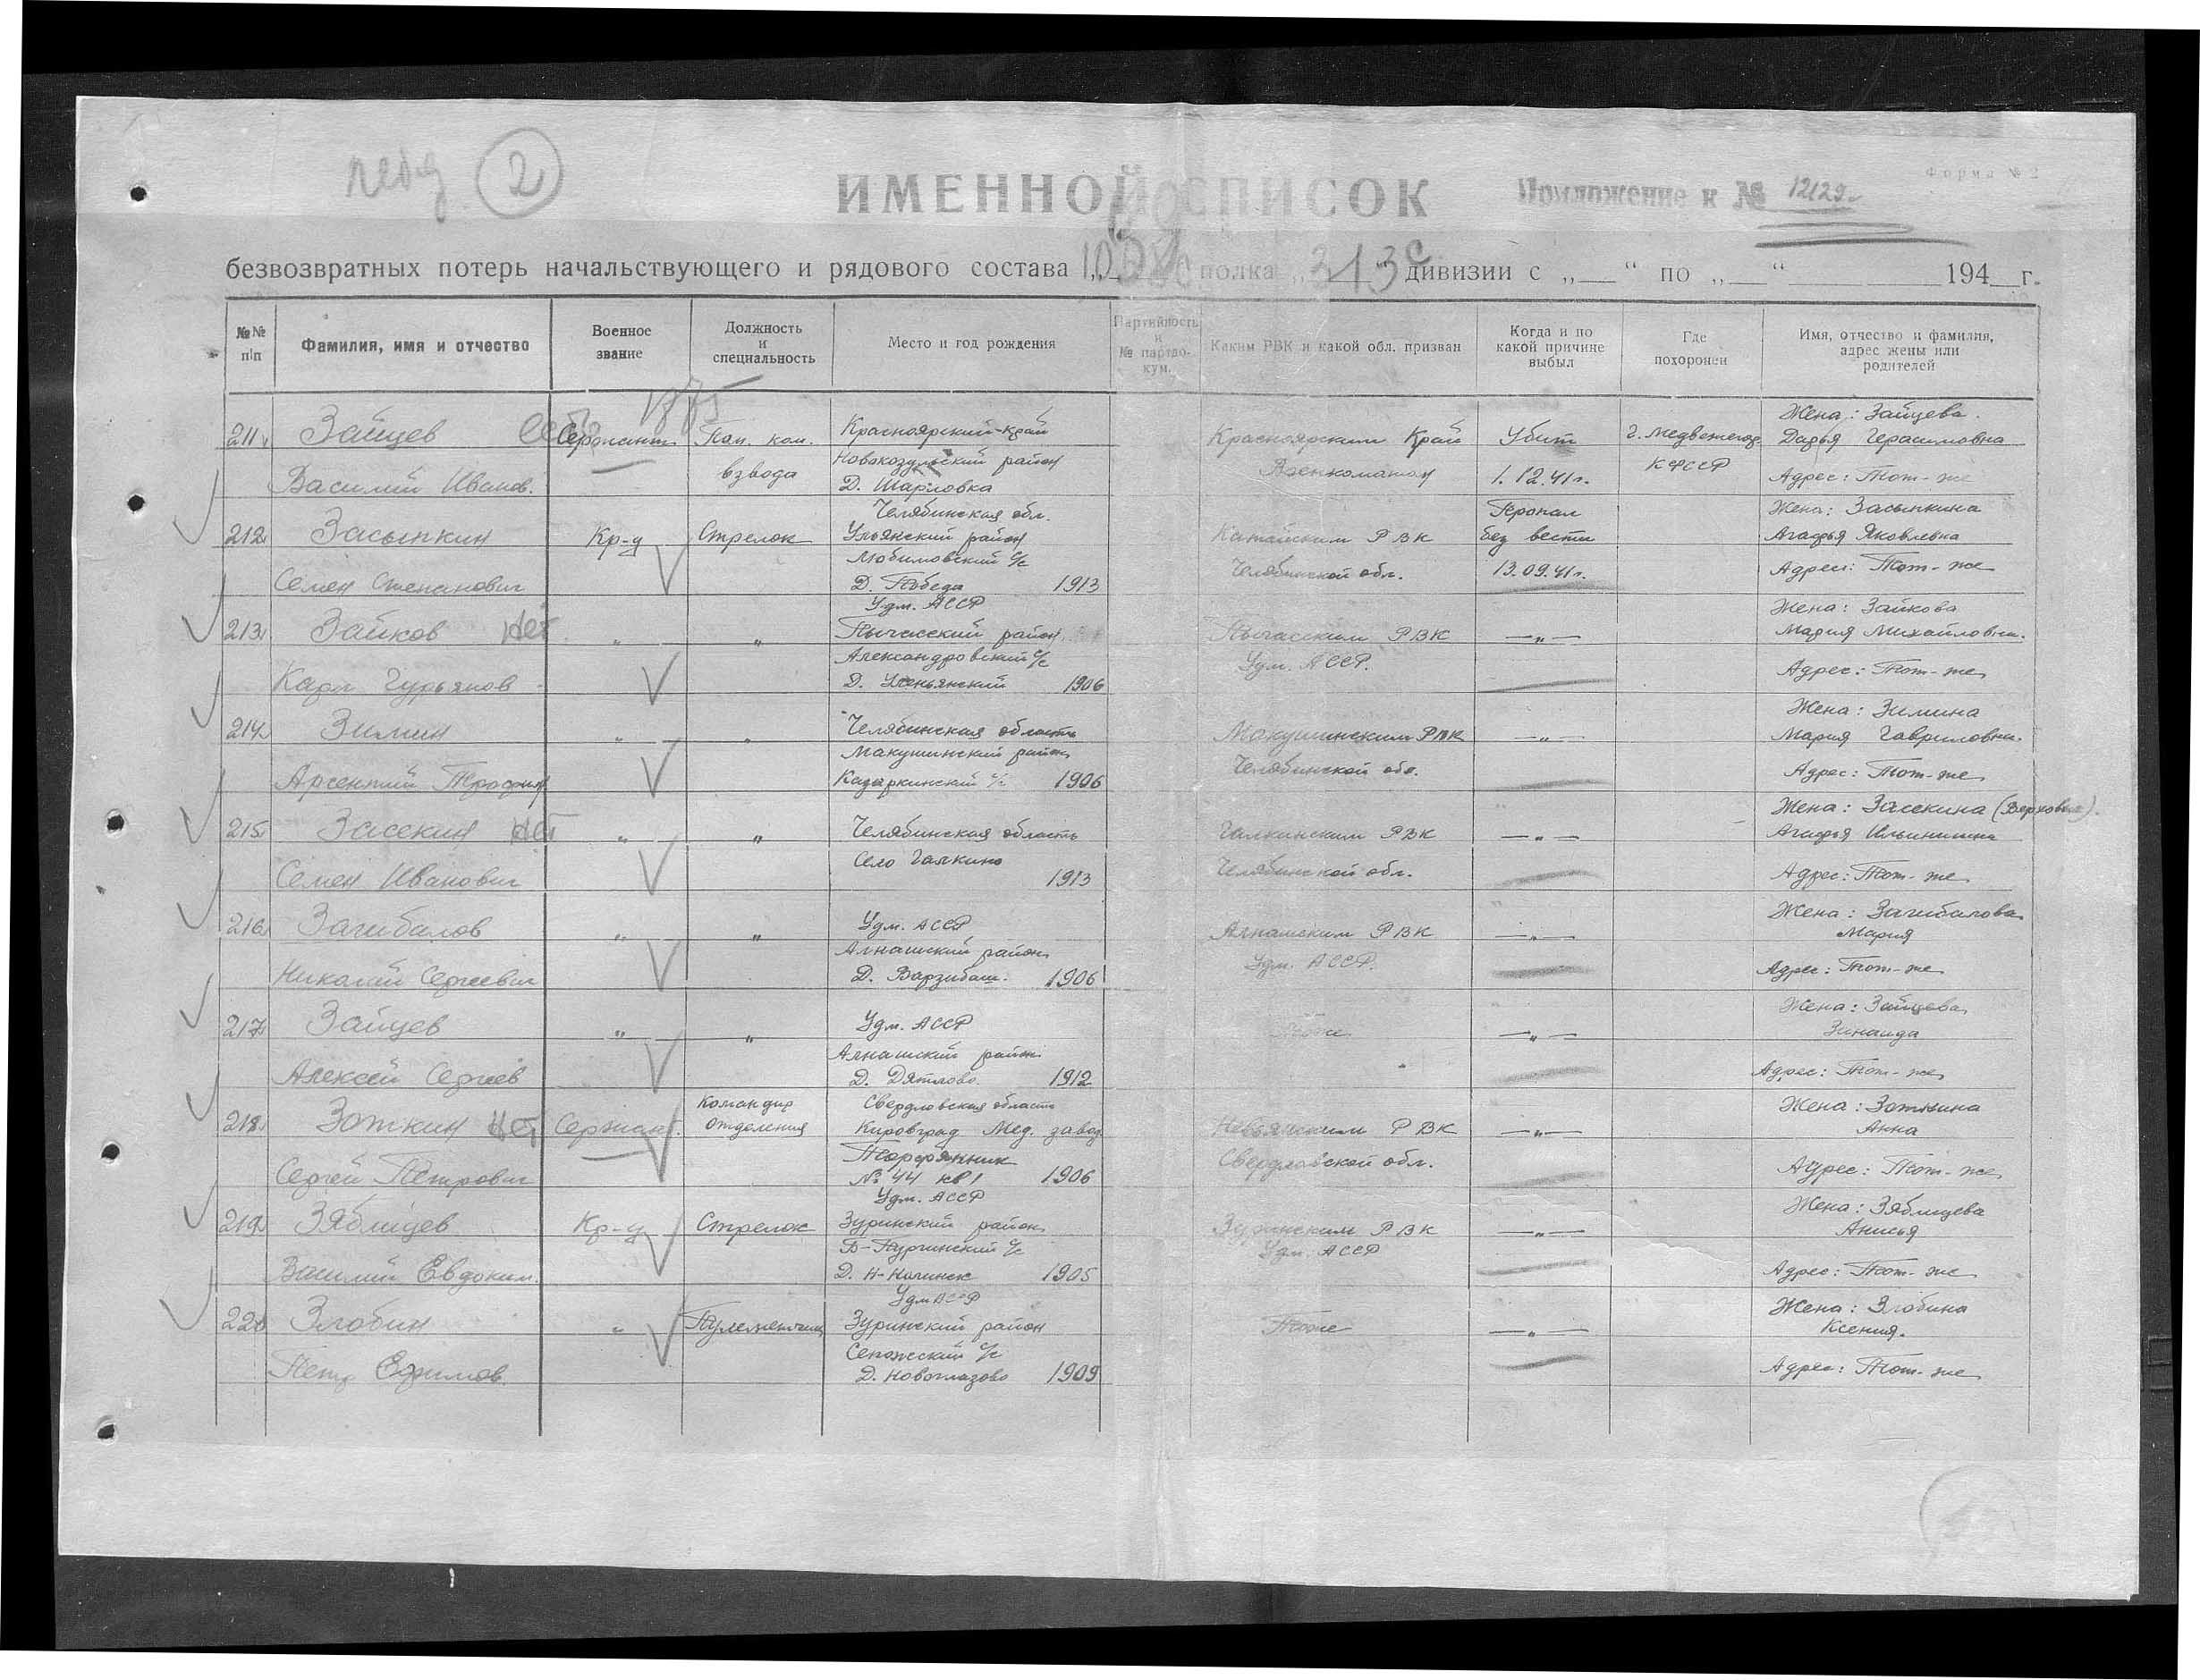 2
ИМЕННОЙ СПИСОК
Приложение к № 12129с
Форма № 2
безвозвратных потерь начальствующего и рядового состава „ полка „313с“ дивизии с „__“ по „__“ 194__г.
№№ п/п | Фамилия, имя и отчество | Военное звание | Должность и специальность | Место и год рождения | Партийность и № партдокум. | Каким РВК и какой обл. призван | Когда и по какой причине выбыл | Где похоронен | Имя, отчество и фамилия, адрес жены или родителей
211 Зайцев Сержант Пом. ком. Красноярский край Красноярским Край Убит г. Медвежегор. Жена: Зайцева Дарья Герасимовна
Василий Иванов. взвода Новокозульский район Д. Шарловка Военкоматом 1.12.41г. КФССР Адрес: Тот-же
212 Засыпкин Кр-ц Стрелок Челябинская обл. Ульянский район Катайским РВК Пропал без вести Жена: Засыпкина Агафья Яковлевна
Семен Степанович Любимовский с/с Д. Победа 1913 Челябинской обл. 13.09.41г. Адрес: Тот-же
213 Зайков нет „ „ Удм. АССР Пычасский район Пычасским РВК —„— Жена: Зайкова Мария Михайловна.
Карл Гурьянов Александровский с/с Д. 1906 Удм. АССР. Адрес: Тот-же
214 Зимин „ „ Челябинская область Макушинским РВК —„— Жена: Зимина Мария Гавриловна.
Арсентий Трофим Макушинский район Казаркинский с/с 1906 Челябинской обл. Адрес: Тот-же
215 Засекин нет „ „ Челябинская область Галкинским РВК —„— Жена: Засекина Агафья Ильинишна
Семен Иванович Село Галкино 1913 Челябинской обл. Адрес: Тот-же
216 Загибалов „ „ Удм. АССР Алнашским РВК —„— Жена: Загибалова Мария
Николай Сергеевич Алнашский район Д. Варзибаш. 1906 Удм. АССР. Адрес: Тот-же
217 Зайцев „ „ Удм. АССР Тоже —„— Жена: Зайцева Зинаида
Алексей Сергеев Алнашский район Д. Дятлово. 1912 Адрес: Тот-же
218 Зоткин нет Сержант. Командир отделения Свердловская область Кировград Мед. завод Невьянским РВК —„— Жена: Зоткина Анна
Сергей Петрович Торфянник № 44 кв 1 1906 Свердловской обл. Адрес: Тот-же
219 Зяблицев Кр-ц Стрелок Удм. АССР Зуринский район Зуринским РВК —„— Жена: Зяблицева Анисья
Василий Евдоким. Б-Пургинский с/с Д. Н-Колинск 1905 Удм. АССР Адрес: Тот-же
220 Злобин „ Пулеметчик Удм АССР Зуринский район Тоже —„— Жена: Злобина Ксения.
Петр Ефимов. Сепожский с/с Д. Новоглазово 1909 Адрес: Тот-же